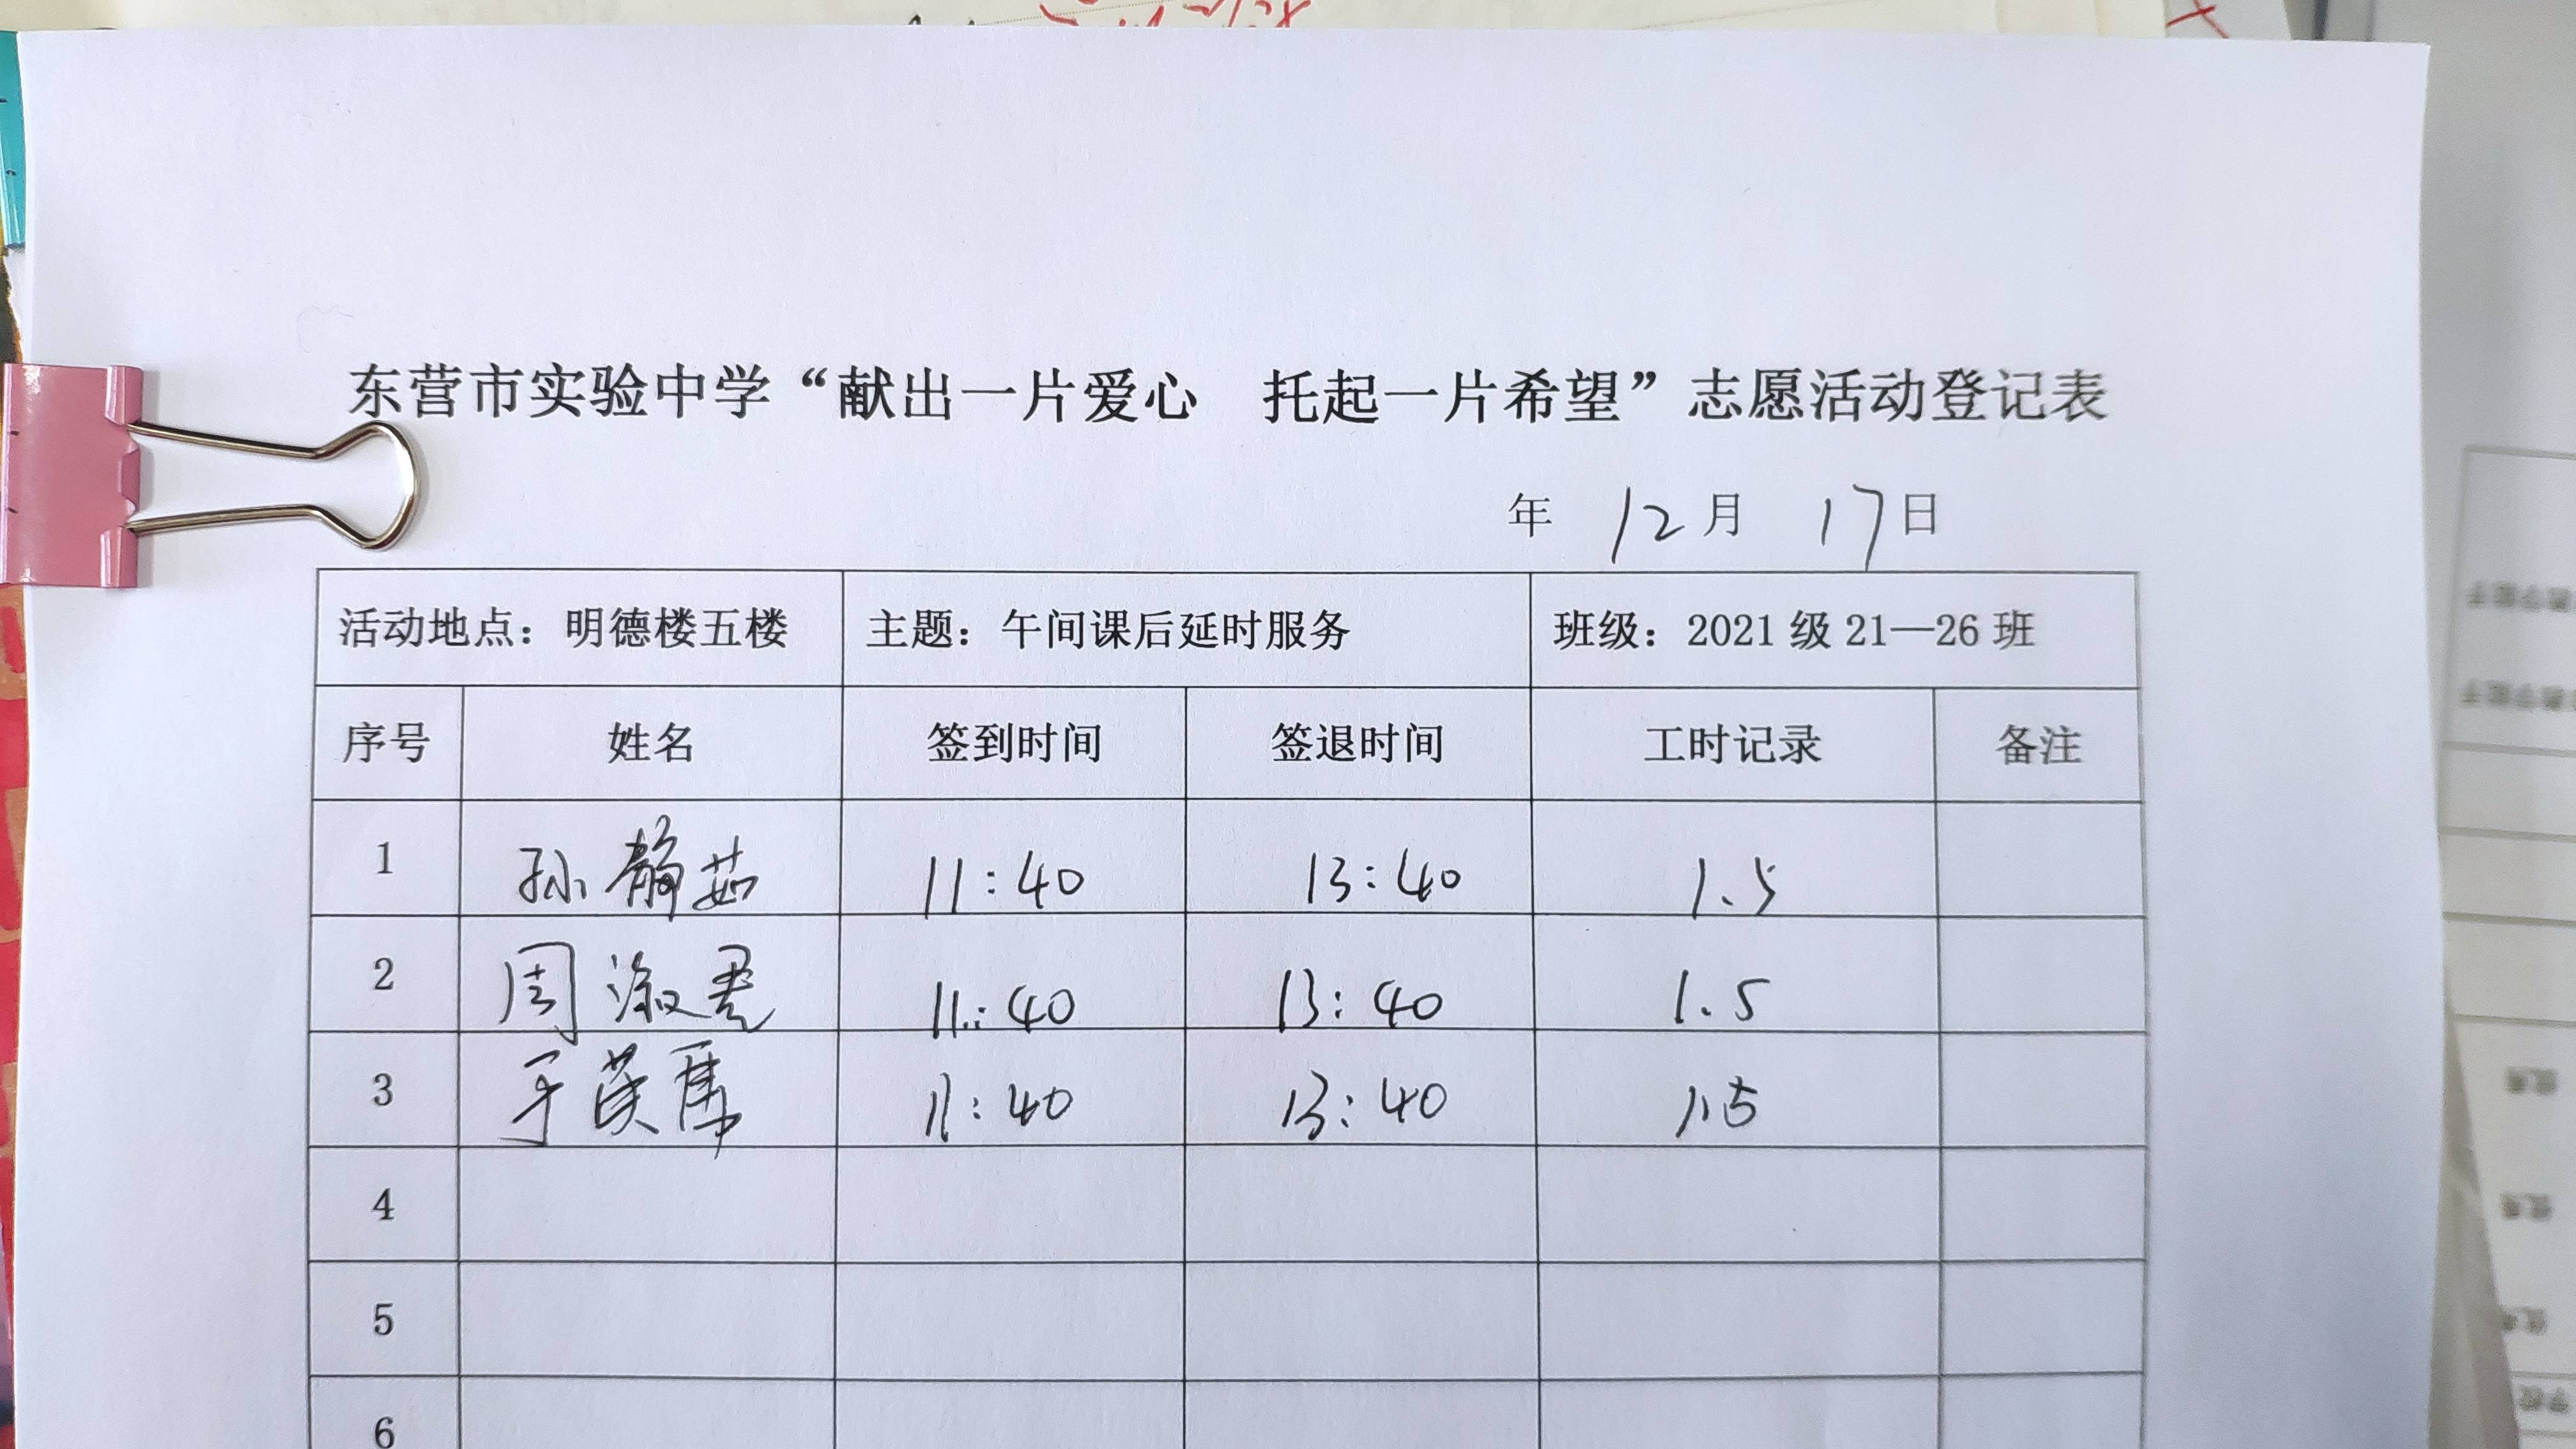 东营市实验中学“献出一片爱心　托起一片希望”志愿活动登记表
年 12月 17日
活动地点：明德楼五楼 主题：午间课后延时服务 班级：2021级21—26班
序号 姓名 签到时间 签退时间 工时记录 备注
1 孙静茹 11:40 13:40 1.5
2 周淑君 11:40 13:40 1.5
3 于 11:40 13:40 1.5
4
5
6